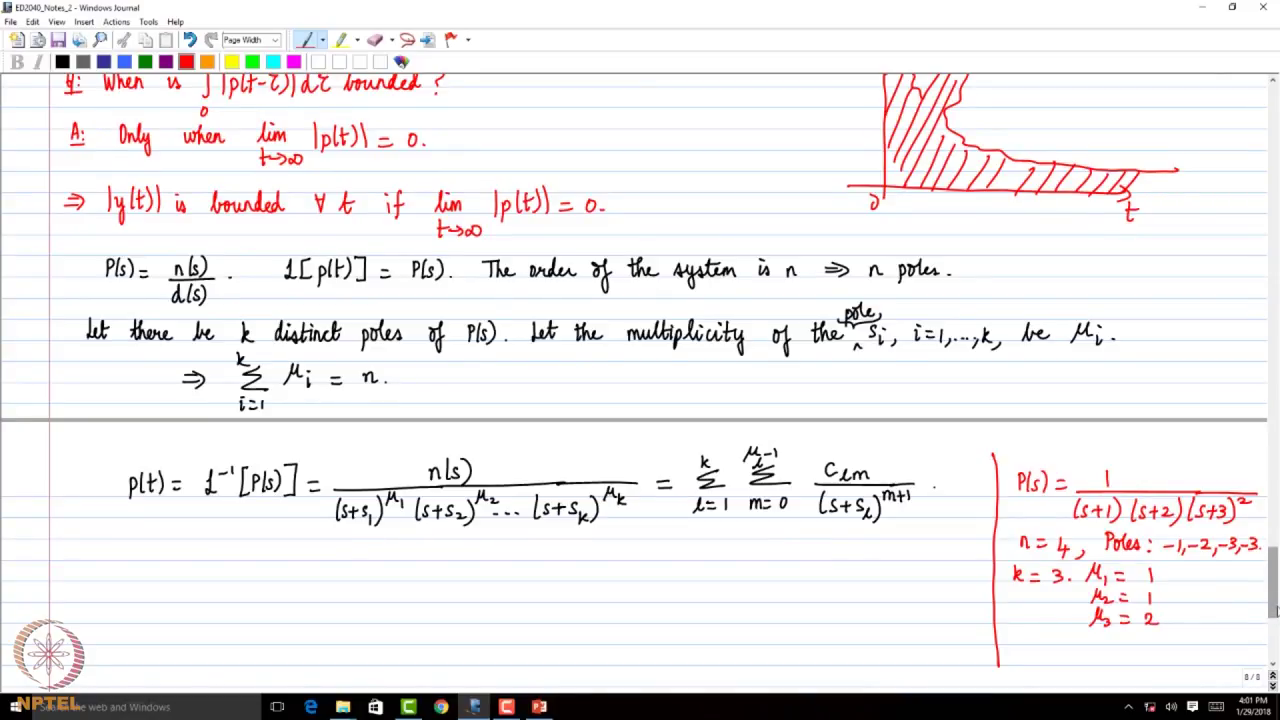 ED2040_Notes_2 - Windows Journal
File Edit View Insert Actions Tools Help
Page Width
B I
Q: When is ∫₀ |p(t-τ)|dτ bounded?
A: Only when lim_{t→∞} |p(t)| = 0.
⇒ |y(t)| is bounded ∀ t if lim_{t→∞} |p(t)| = 0.
0 t
P(s) = n(s)/d(s). L[p(t)] = P(s). The order of the system is n ⇒ n poles.
Let there be k distinct poles of P(s). Let the multiplicity of the pole s_i, i=1,...,k, be μ_i.
⇒ Σ_{i=1}^{k} μ_i = n.
p(t) = L⁻¹[P(s)] = n(s)/((s+s₁)^{μ₁} (s+s₂)^{μ₂} ... (s+s_k)^{μ_k}) = Σ_{l=1}^{k} Σ_{m=0}^{μ_l-1} C_{lm}/(s+s_l)^{m+1}.
P(s) = 1/((s+1)(s+2)(s+3)²)
n = 4, Poles: -1,-2,-3,-3.
k = 3. μ₁ = 1
μ₂ = 1
μ₃ = 2
8/8
NPTEL
Search the web and Windows
4:01 PM
1/29/2018